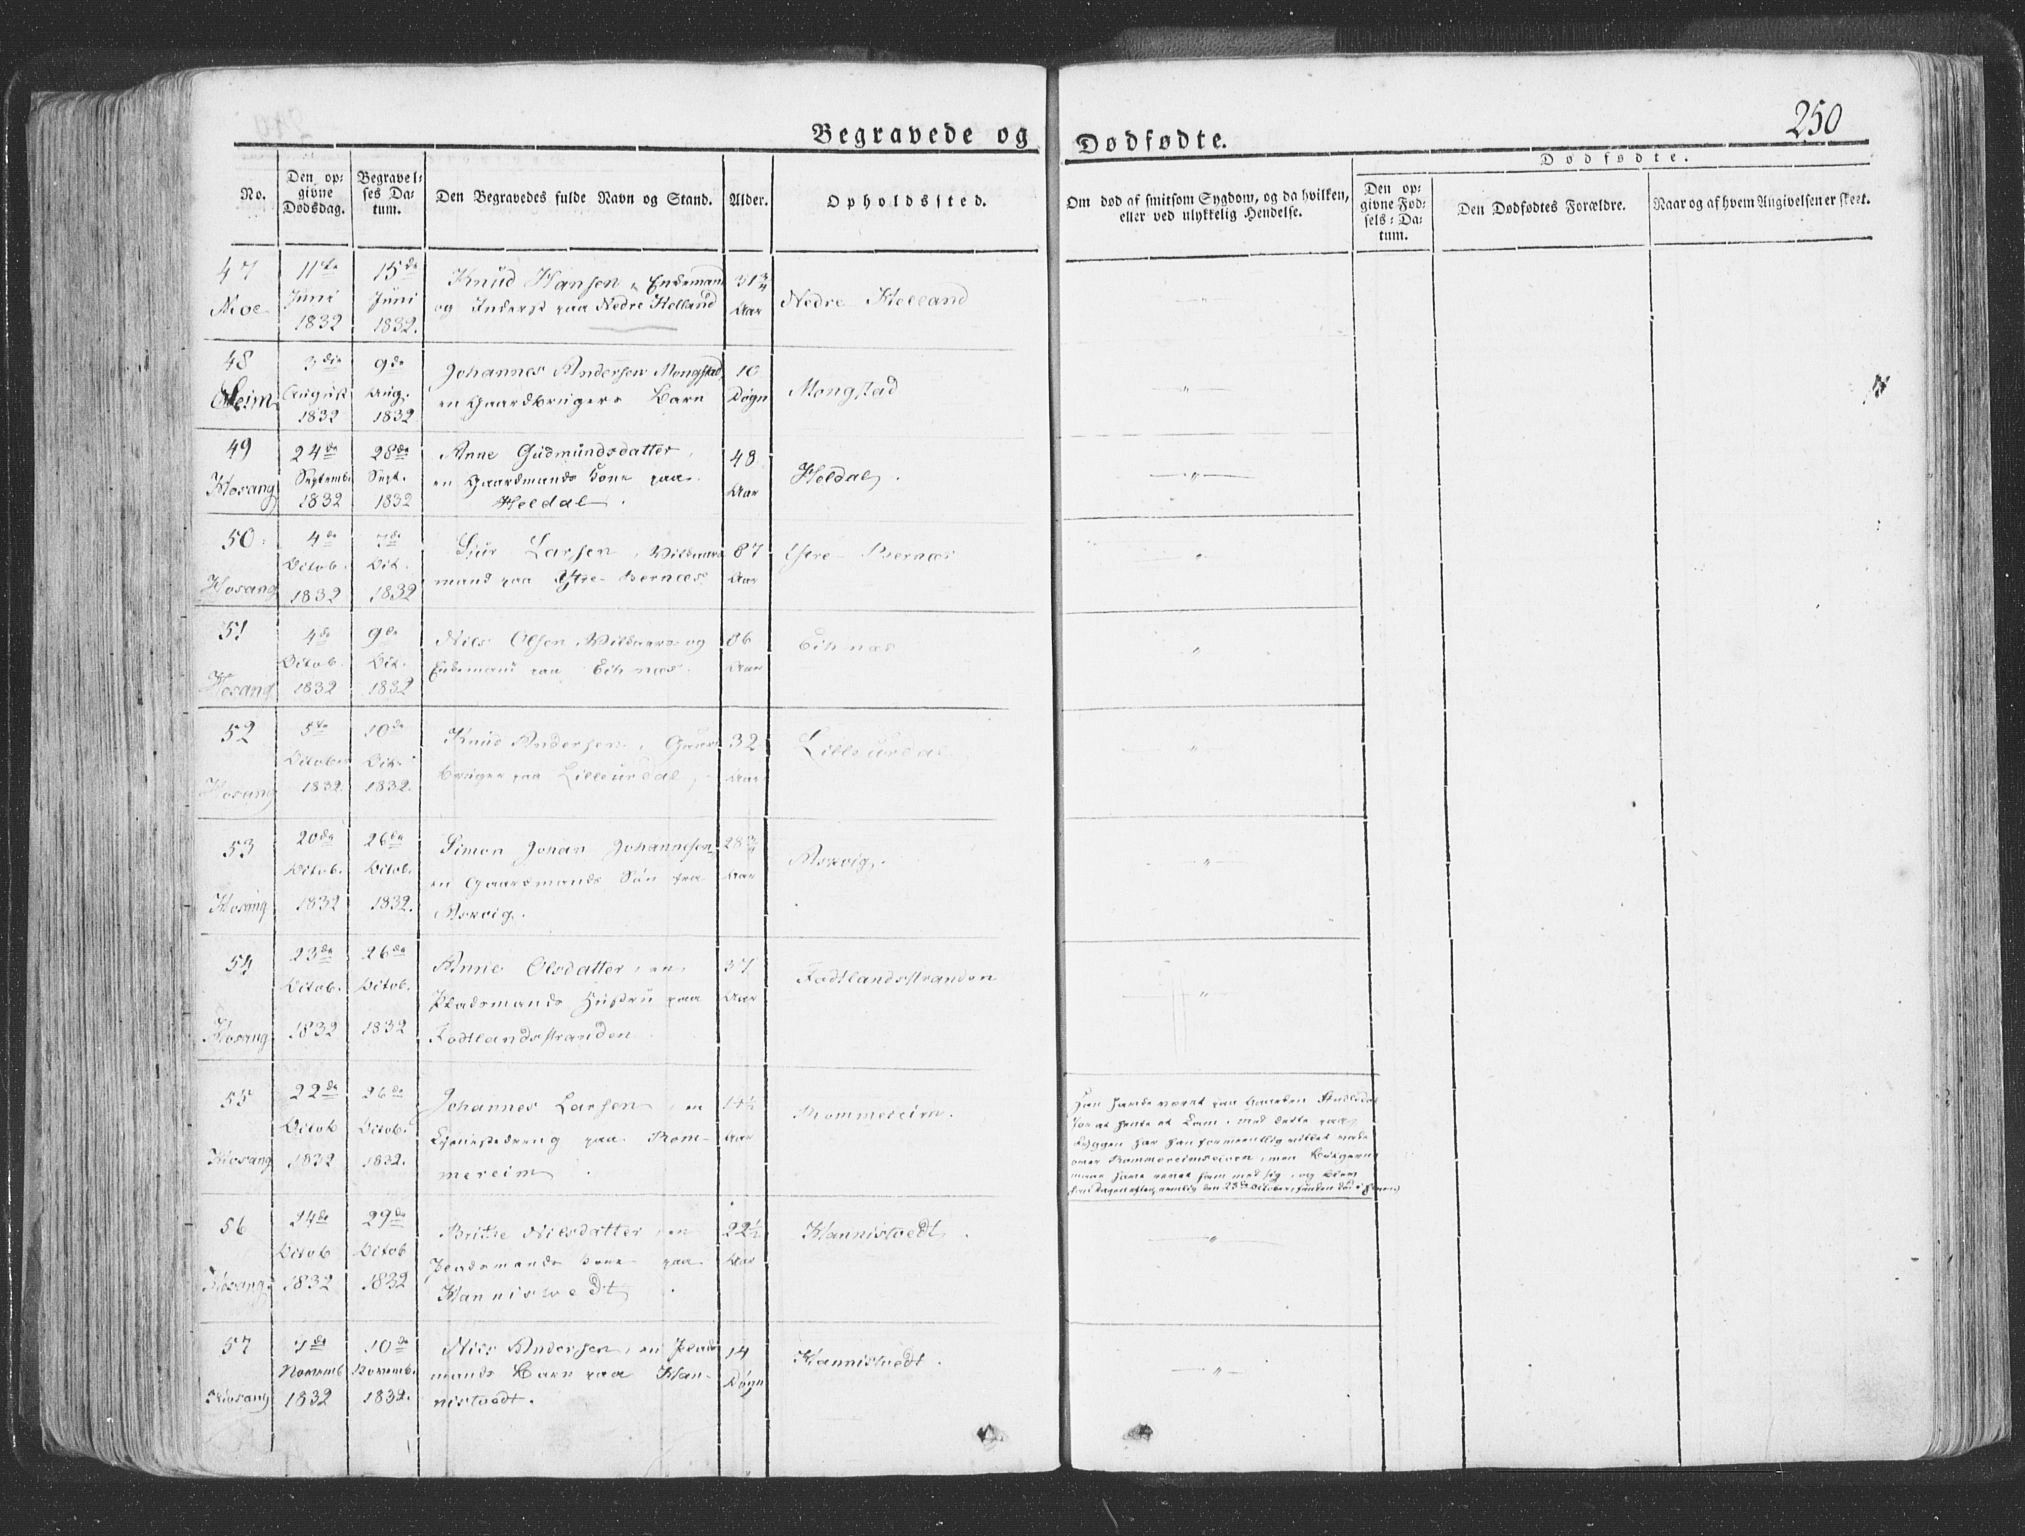 250
Begravede og Dødfødte.
No.
Den op-
givne
Dødsdag.
Begravel-
ses Da-
tum.
Den Begravedes fulde Navn og Stand.
Alder.
Opholdssted.
Om død af smitsom Sygdom, og da hvilken,
eller ved ulykkelig Hendelse.
Dødfødte.
Den op-
givne Fød-
sels-Da-
tum.
Den Dødfødtes Forældre.
Naar og af hvem Angivelsen er skeet.
47
Moe
11te
Juni
1832
15de
Juni
1832.
Knud Hansen, Enkemand
og Inderst paa Nedre Helland
51 3/4
Aar
Nedre Helland
"
48
Seim
3die
August
1832
9de
Aug.
1832
Johannes Andersen Mongstad,
en Gaardbrugers Barn
10
Døgn
Mongstad
"
49
Hosang
24de
Septemb.
1832
28de
Sept.
1832
Anne Gudmundsdatter,
en Gaardmands Kone paa
Heldal.
48
Aar
Heldal.
"
50.
Hosang
4de
Octob.
1832
7de
Oct.
1832
Sjur Larsen, Vilkaars-
mand paa Ytre-Bernæs
87
Aar
Ytre-Bernæs
"
51
Hosang
4de
Octob.
1832
9de
Oct.
1832
Nils Olsen Vilkaars- og
Enkemand paa Eiknæs.
86
Aar
Eiknæs
"
52
Hosang
5te
October
1832
10de
Oct.
1832.
Knud Andersen, Gaard-
bruger paa Lilleurdal,
32
Aar
Lilleurdal
"
53
Hosang
20de
Octob.
1832
26de
Octob.
1832.
Simon Johan Johannesen
en Gaardmands Søn fra
Askvig.
28 3/4
Aar
Askvig.
"
54
Hosang
23de
Octob.
1832
26de
Octob.
1832
Anne Olsdatter, en
Pladsmands Hustru paa
Fodtlandsstranden
37
Aar
Fodtlandsstranden
"
55
Hosang
22de
Octob
1832
26de
Octob.
1832.
Johannes Larsen, en
Tjenestedreng paa Rom-
mereim.
14 1/2
Aar
Rommereim.
Han havde været paa Gaarden
for at hente et Lam, med dette paa
Ryggen har han formeentlig villet vade
over Rommereimselven, men Bølgerne
maae have revet ham med sig, og blev
Dagen efter, nemlig den 23de October, funden død i
56
Hosang
24de
Octob
1832
29de
Octob
1832
Britte Nilsdatter, en
Pladsmands Kone paa
Hannistvedt.
22 1/2
Aar
Hannistvedt.
"
57
Hosang
7de
Novemb
1832
10de
Novemb.
1832.
Nils Andersen, en Plads-
mands Barn paa Han-
nistvedt.
14
Døgn
Hannistvedt.
"